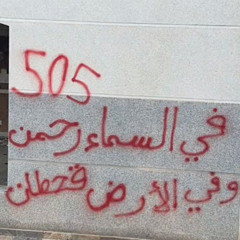 505
في السماء رحمن
وفي الأرض قحطان